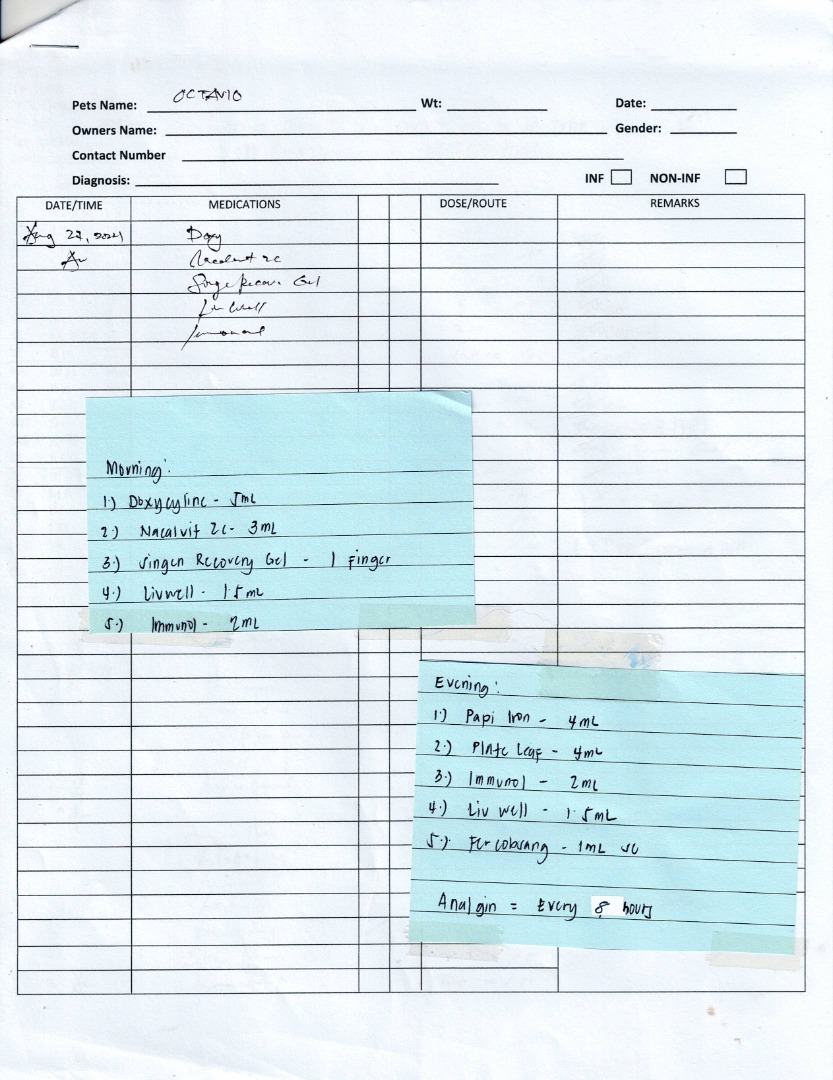 Pets Name: OCTAVIO Wt: Date:
Owners Name: Gender:
Contact Number
Diagnosis: INF NON-INF
DATE/TIME MEDICATIONS DOSE/ROUTE REMARKS
Aug 27, 2021 Doxy
Am
Recov. Gel
Liv Well
Morning:
1.) Doxycycline - 5mL
2.) Nacalvit 2c - 3mL
3.) Singen Recovery Gel - 1 Finger
4.) Livwell - 1.5mL
5.) Immunol - 2mL
Evening:
1.) Papi Iron - 4mL
2.) Plate Leaf - 4mL
3.) Immunol - 2mL
4.) Liv well - 1.5mL
5.) Fercobsang - 1mL SC
Analgin = Every 8 hours